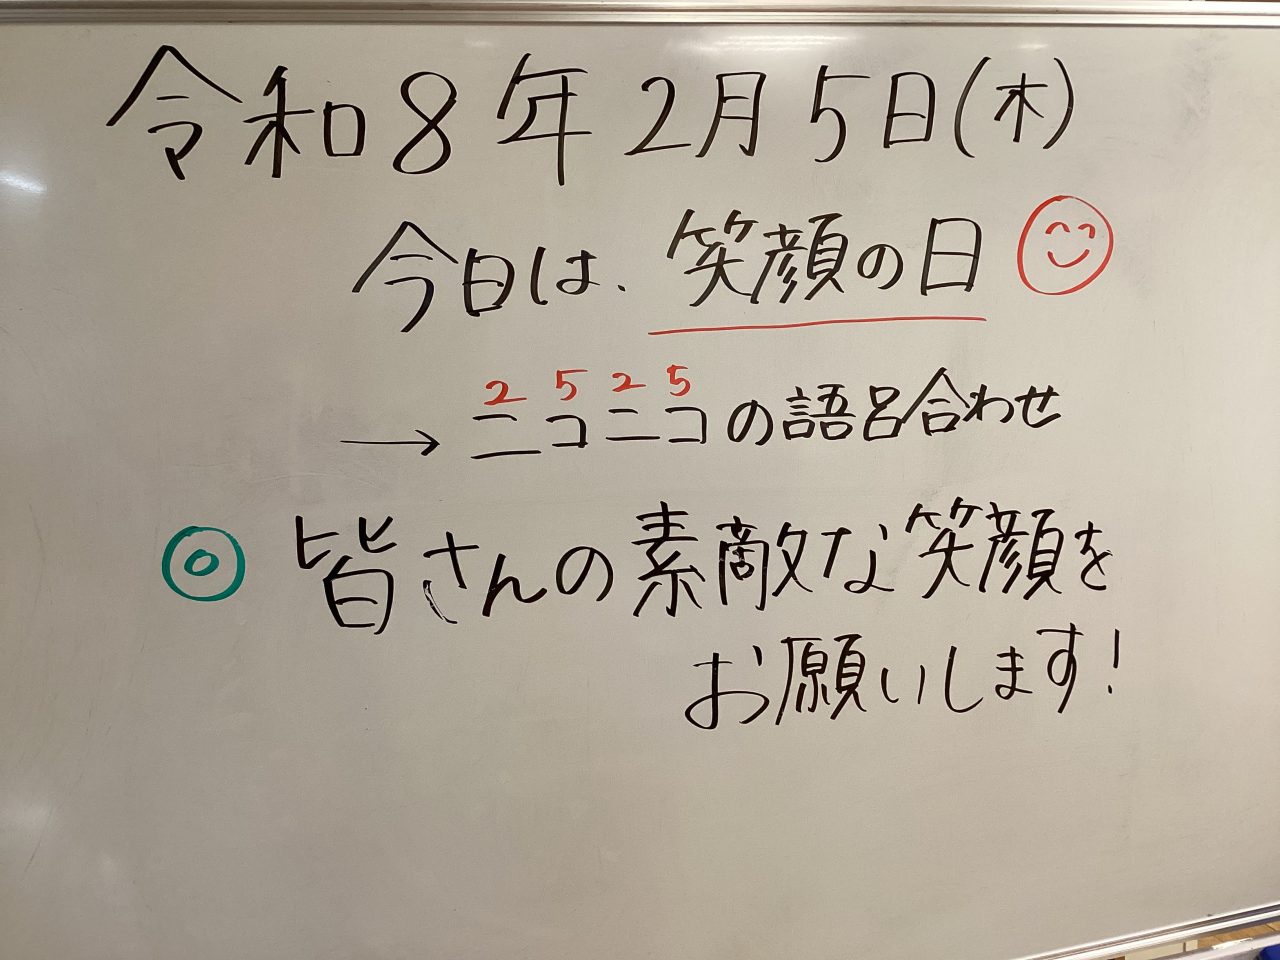 令和8年2月5日(木)
今日は、笑顔の日
2525
→ニコニコの語呂合わせ
◎ 皆さんの素敵な笑顔を
お願いします!